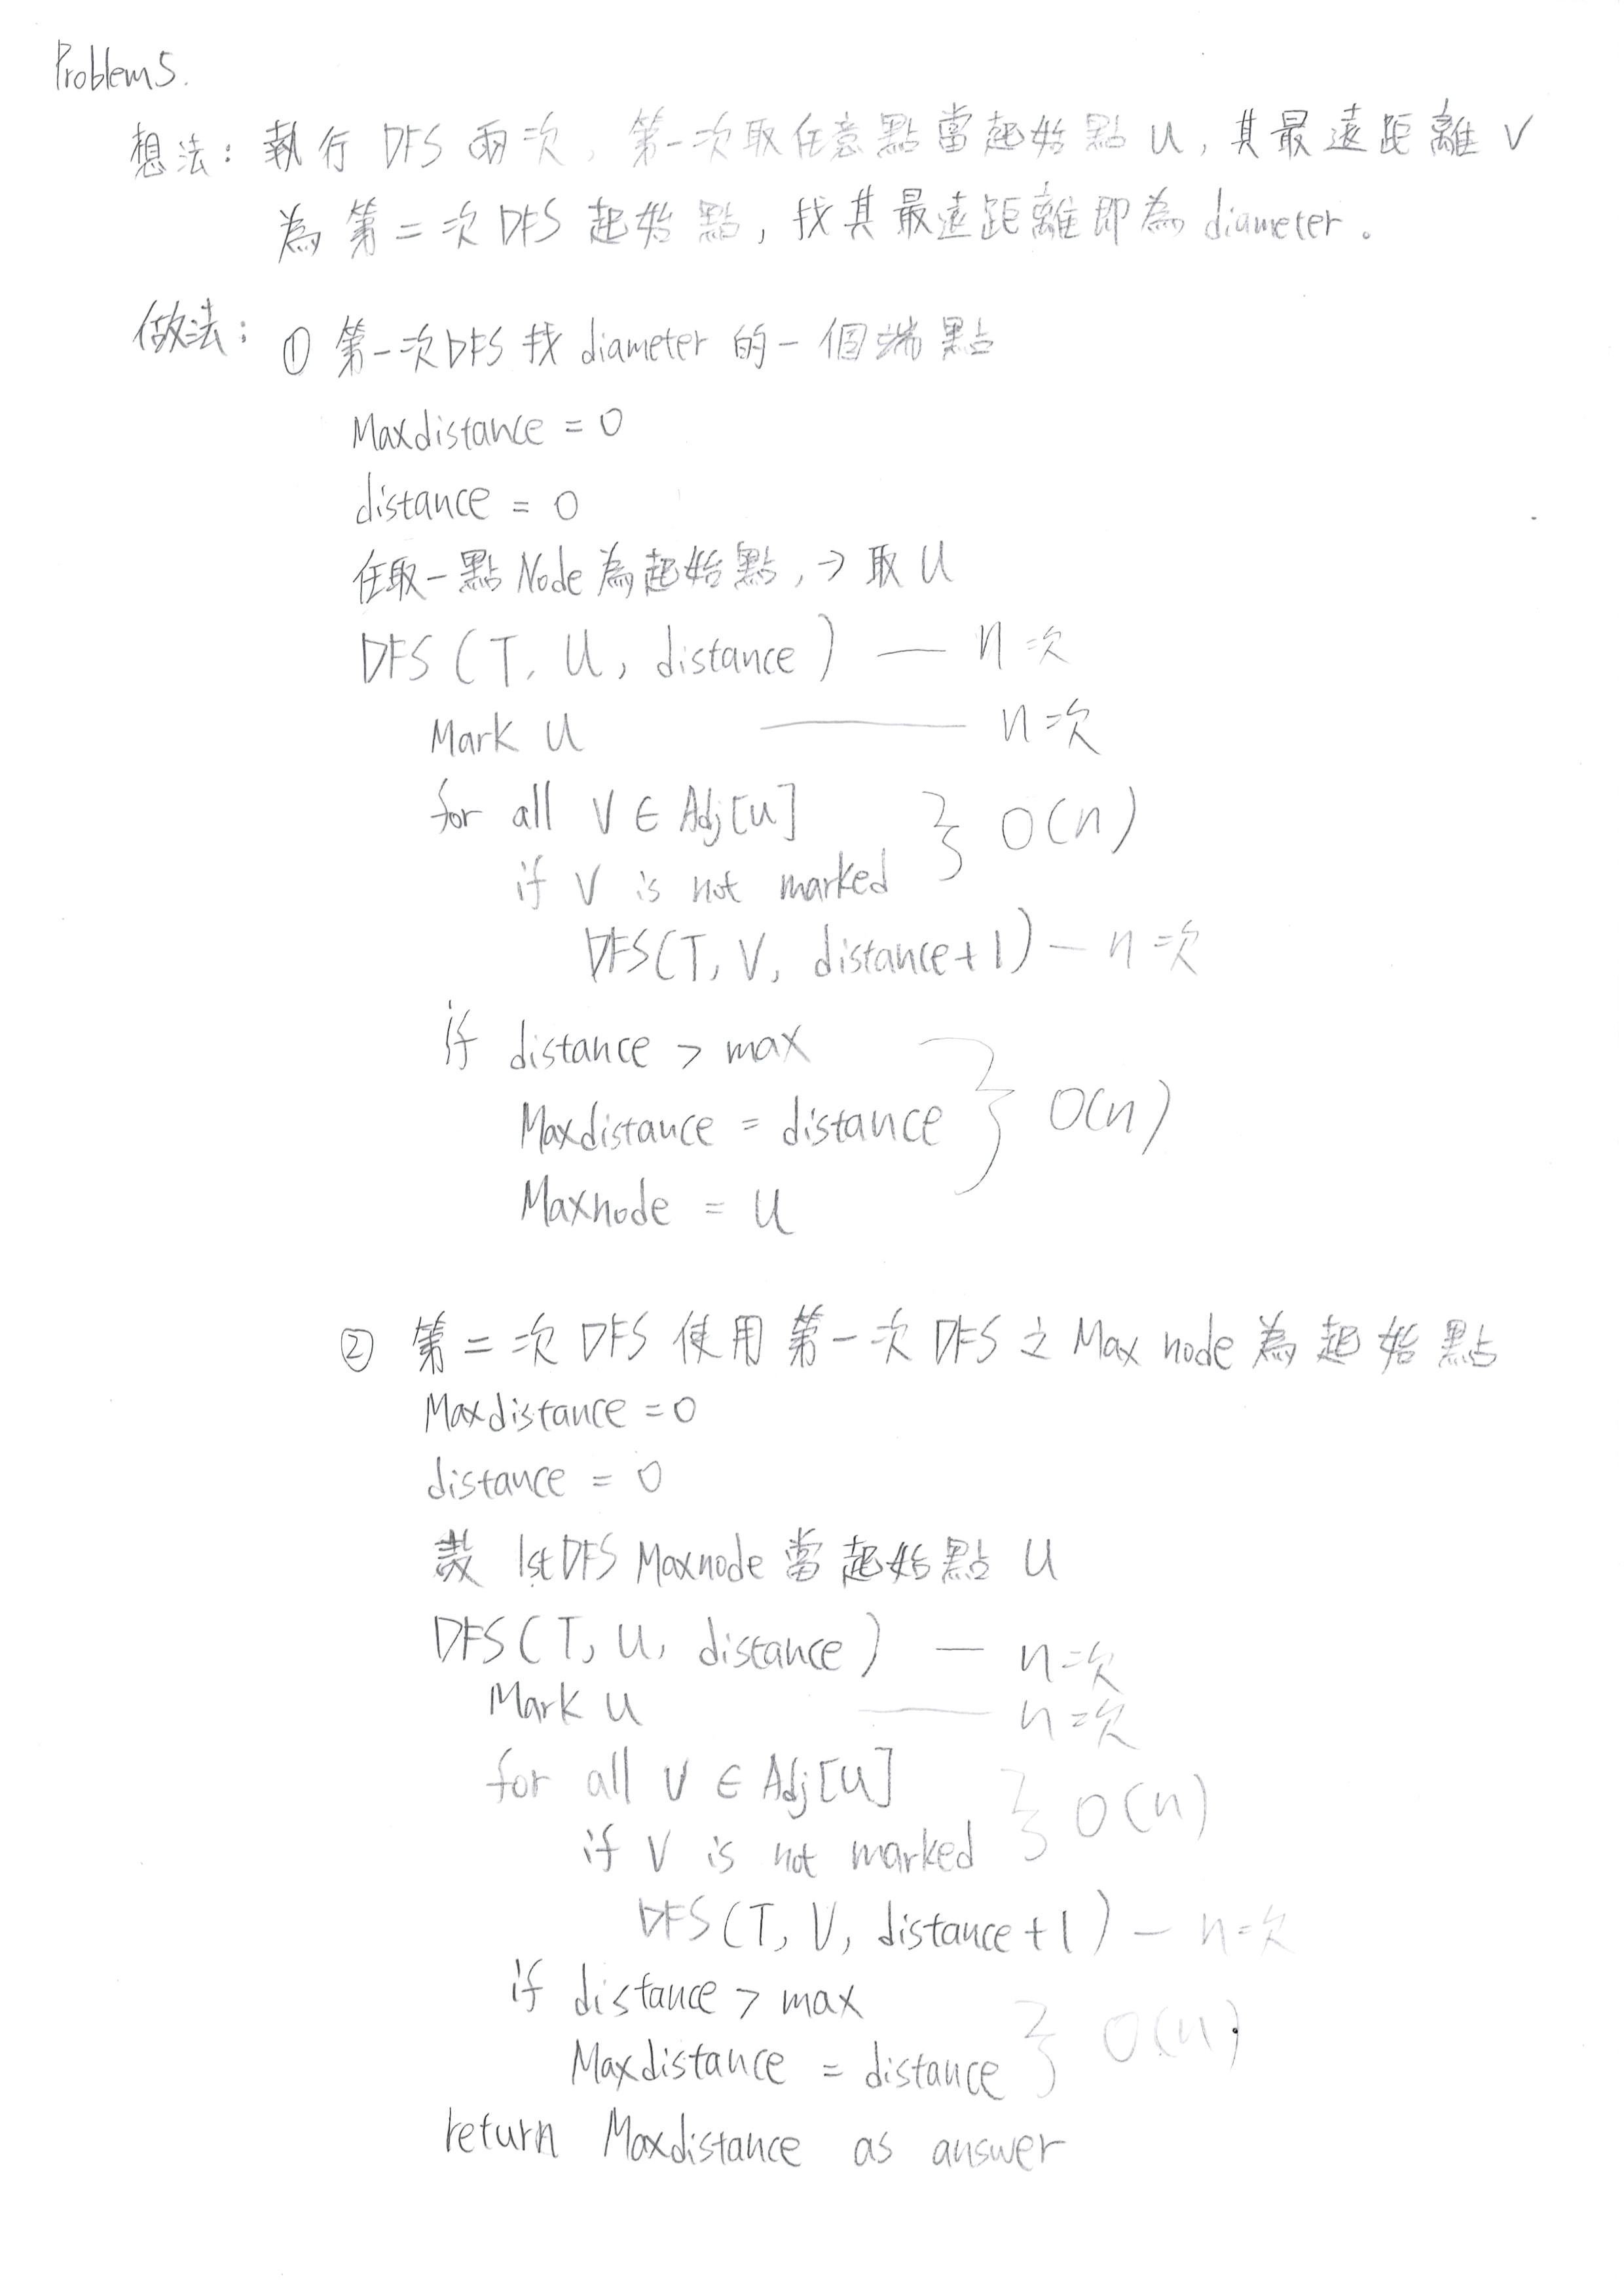 Problem 5.
想法: 執行 DFS 兩次, 第一次取任意點當起始點 u, 其最遠距離 v
為第二次 DFS 起始點, 找其最遠距離即為 diameter。
做法: ① 第一次 DFS 找 diameter 的一個端點
Maxdistance = 0
distance = 0
任取一點 Node 為起始點, → 取 u
DFS (T, u, distance) — n次
Mark u — n次
for all v ∈ Adj[u] } O(n)
if v is not marked
DFS(T, v, distance+1) — n次
if distance > max
Maxdistance = distance } O(n)
Maxnode = u
② 第二次 DFS 使用第一次 DFS 之 Max node 為起始點
Maxdistance = 0
distance = 0
1st DFS Maxnode 當起始點 u
DFS(T, u, distance) — n次
Mark u — n次
for all v ∈ Adj[u] } O(n)
if v is not marked
DFS(T, v, distance+1) — n次
if distance > max
Maxdistance = distance } O(n)
return Maxdistance as answer